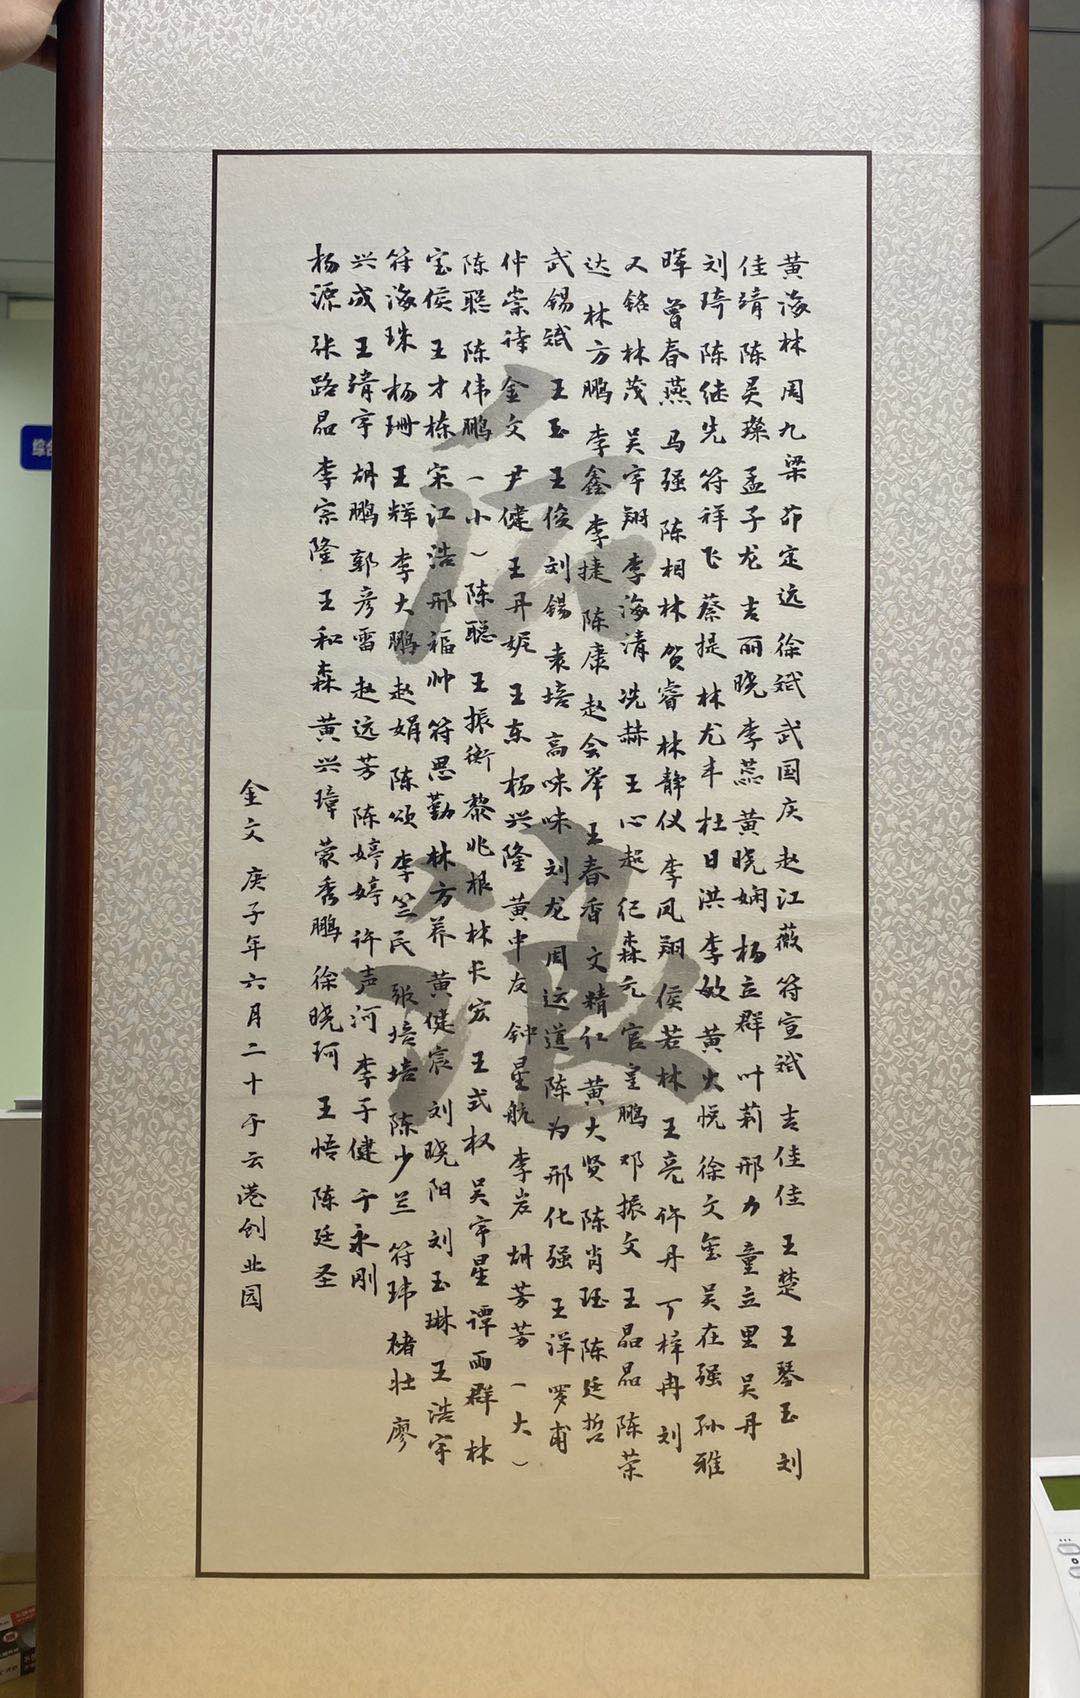 黄海林 周九梁 茆定远 徐斌 武国庆 赵江薇 符宣斌 吉佳佳 王楚 王琴玉 刘
佳靖 陈昊璨 孟子龙 吉丽晓 李蕊 黄晓娴 杨立群 叶莉 邢力 童立里 吴丹
刘琦 陈继先 符祥飞 蔡提 林尤丰 杜日洪 李敏 黄火悦 徐文玺 吴在强 孙雅
晖 曾春燕 马强 陈相林 贺睿 林静仪 李凤翔 侯若林 王亮 许丹 丁梓冉 刘
又铭 林茂 吴宇翔 李海清 冼赫 王心超 纪森元 官圣鹏 邓振文 王晶晶 陈荣
达 林方鹏 李鑫 李捷 陈康 赵会举 王春香 文精仁 黄大贤 陈肖珏 陈廷哲
武锡斌 王玉 王俊 刘锡 袁培 高咪咪 刘龙 周运道 陈为 邢化强 王洋 罗甫
仲崇诗 金文 尹健 王丹妮 王东 杨兴隆 黄中友 钟星航 李岩 胡芳芳（大）
陈聪 陈伟鹏（小）陈聪 王振衡 黎兆根 林长宏 王式权 吴宇星 谭雨群 林
宝侯 王才栋 宋江浩 邢福帅 符思勤 林方养 黄健宸 刘晓阳 刘玉琳 王浩宇
符海珠 杨珊 王辉 李大鹏 赵娟 陈颂 李竺民 张培培 陈少兰 符玮 褚壮 廖
兴成 王靖宇 胡鹏 郭彦雷 赵远芳 陈婷婷 许声河 李子健 于永刚
杨源 张路晶 李宗隆 王和森 黄兴璋 蒙秀鹏 徐晓珂 王悟 陈廷圣
金文 庚子年六月二十于云港创业园
综合